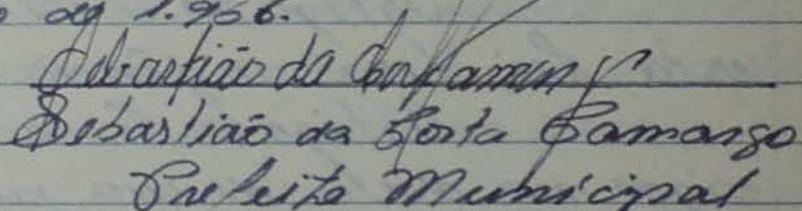 de 1.966.
Sebastião da Costa Camargo
Sebastião da Costa Camargo
Prefeito Municipal